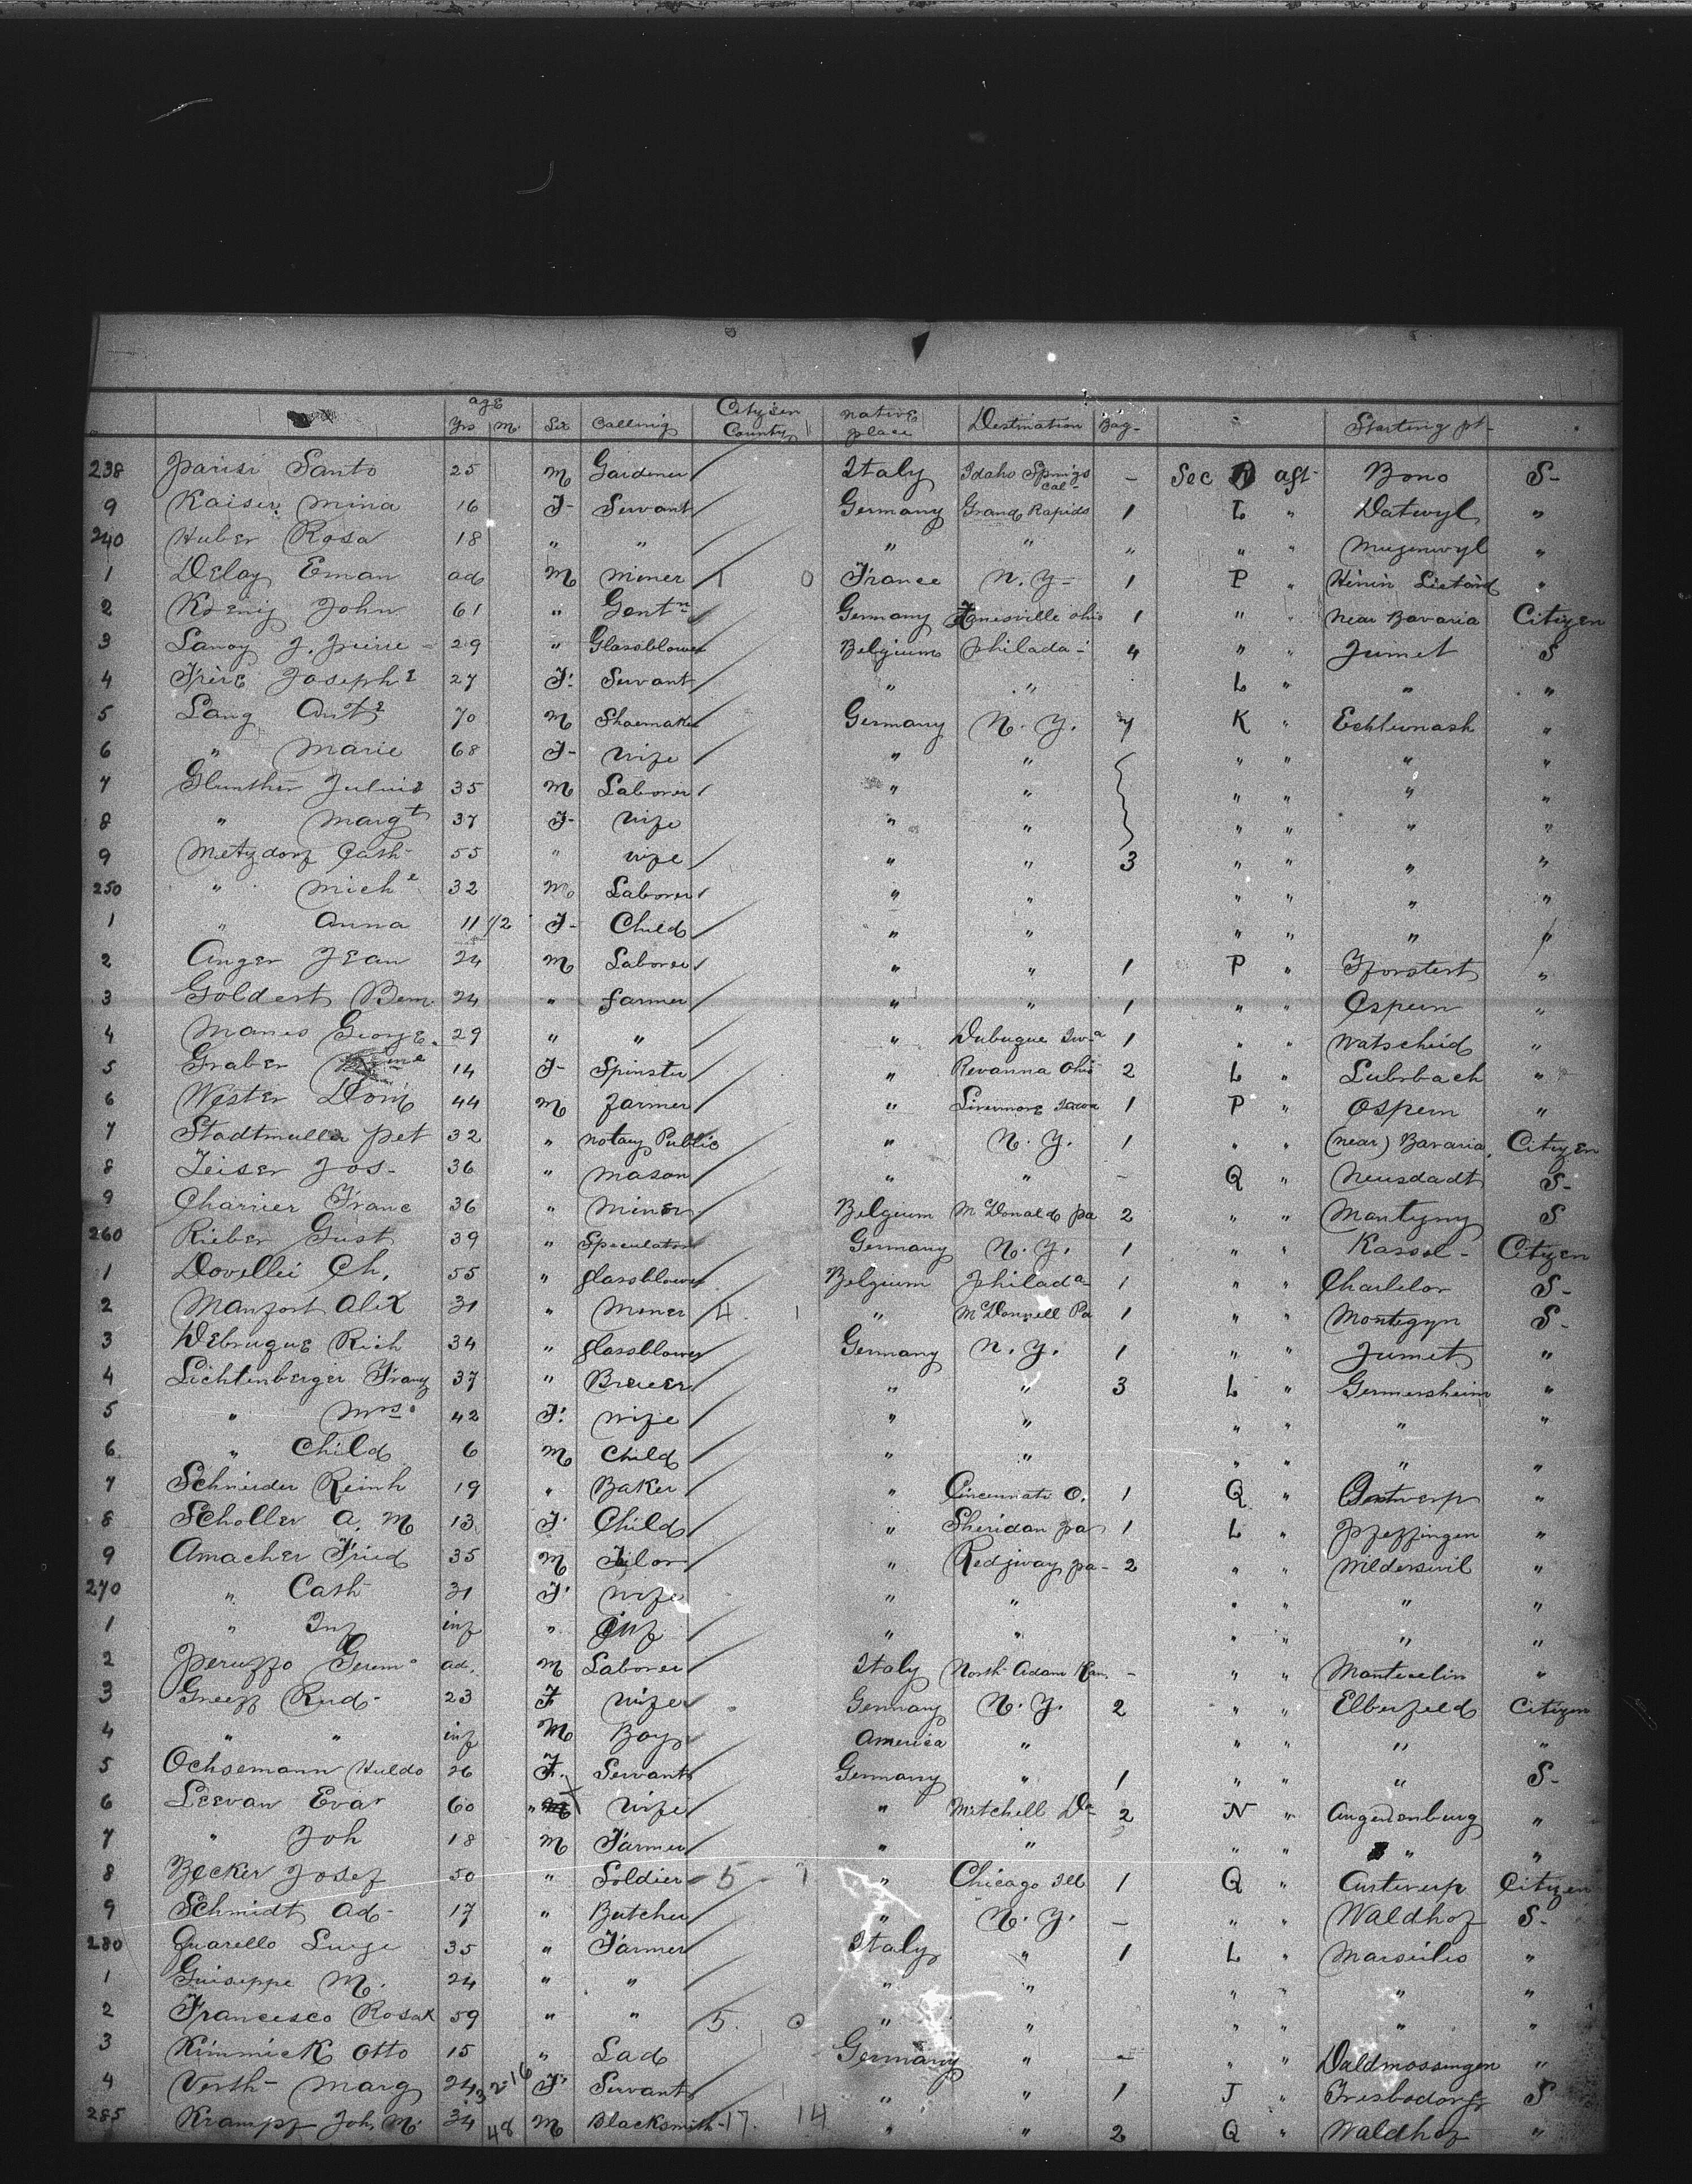 age
Yrs M. Sex Calling Citizen County native place Destination Bag- Starting pt-
238 Parisi Santo 25 M Gardener Italy Idaho Springs Cal- - Sec aft- Bono S-
9 Kaiser Mina 16 F- Servant Germany Grand Rapids 1 L " Datwyl "
240 Huber Rosa 18 " " " " " " " Mugenwyl "
1 Delay Eman ad M miner 1 0 France N.Y- 1 P " Henin Lietard "
2 Koenig John 61 " Gentn Germany Zanesville ohio 1 " " near Bavaria Citizen
3 Lanoy J. Pierre - 29 " Glassblower Belgium Philada- 4 " " Jumet S
4 Frere Josephe 27 F. Servant " " L " " "
5 Lang Ante 70 M Shoemaker Germany N.Y. 7 K " Echternash "
6 " Marie 68 F- Wife " " " " " "
7 Glunther Julius 35 M Laborer " " " " " "
8 " Margt 37 F- Wife " " " " " "
9 Metzdorf Cath- 55 " wife " " 3 " " " "
250 " Miche 32 M Laborer " " " " " "
1 " Anna 11 1/2 F- Child " " " " " "
2 Anger Jean 24 M Laborer " " 1 P " "
3 Goldert Bern. 24 " farmer " " 1 " " Ospern "
4 Manes George. 29 " " " Dubuque Iwa 1 " " Watscheid "
5 Graber 14 F- Spinster " Revanna Ohio 2 L " Lubrbach "
6 Wester Dom 44 M farmer " Livermore Iowa 1 P " Ospern "
7 Stadtmuller Pet 32 " notary Public " N.Y. 1 " " (near) Bavaria. Citizen
8 Zeiser Jos- 36 " Mason " " - Q " Neusdadt S-
9 Charrier Franc 36 " Miner Belgium McDonald pa 2 " " Montigny S
260 Rieber Gust 39 " Speculator Germany N.Y. 1 " " Kassel- Citizen
1 Dovillei Ch, 55 " glassblower Belgium Philada 1 " " Charlelor S-
2 Manfort Alex 31 " Miner 4. 1 " McDonnell Pa 1 " " Montegyn S-
3 Debruque Rich 34 " glassblower Germany N.Y. 1 " " Jumet "
4 Lichtenberger Franz 37 " Brewer " " 3 L " Germersheim "
5 " Mrs. 42 F. wife " " " " " "
6 " Child 6 M Child " " " " " "
7 Schneider Reinh 19 " Baker " Cincinnati O. 1 Q " Antwerp "
8 Scholler A. M 13 F. Child " Sheridan pa 1 L " Pfeffingen "
9 Amacher Fried 35 M " Redjway pa- 2 " " Wilderswil "
270 " Cath- 31 F. wife " " " " " "
1 " Inf inf " Inf " " " " " "
2 Peruzzo Gerem ad. M Laborer Italy North Adam Kan. - " " Montecelin "
3 Greeff Rud- 23 F wife Germany N.Y. 2 " " Elberfeld Citizen
4 " " inf M Boy America " " " " "
5 Ochsemann Huldo 26 F. Servant Germany " 1 " " " S-
6 Leevan Eva 60 " Wife " Mitchell Da- 2 N " Angerenburg "
7 " Joh 18 M Farmer " " " " " "
8 Becker Josef 50 " Soldier 5 1 " Chicago Ill 1 Q " Antwerp Citizen
9 Schmidt Ad- 17 " Butcher " N.Y. - " " Waldhof S-
280 Quarello Luige 35 " Farmer Italy " 1 L " Marseiles "
1 Guiseppe M. 24 " " " " " " " "
2 Francesco Rosa 59 " " 5. 0 " " " " " "
3 Kimmick Otto 15 " Lad Germany " - " " Waldmossingen "
4 Verth- Marg 24 F. Servant " " 1 J " Fresbodorf S
285 Krampf Joh, M. 34 48 M Blacksmith 17. 14 " " 2 Q " Waldhof "